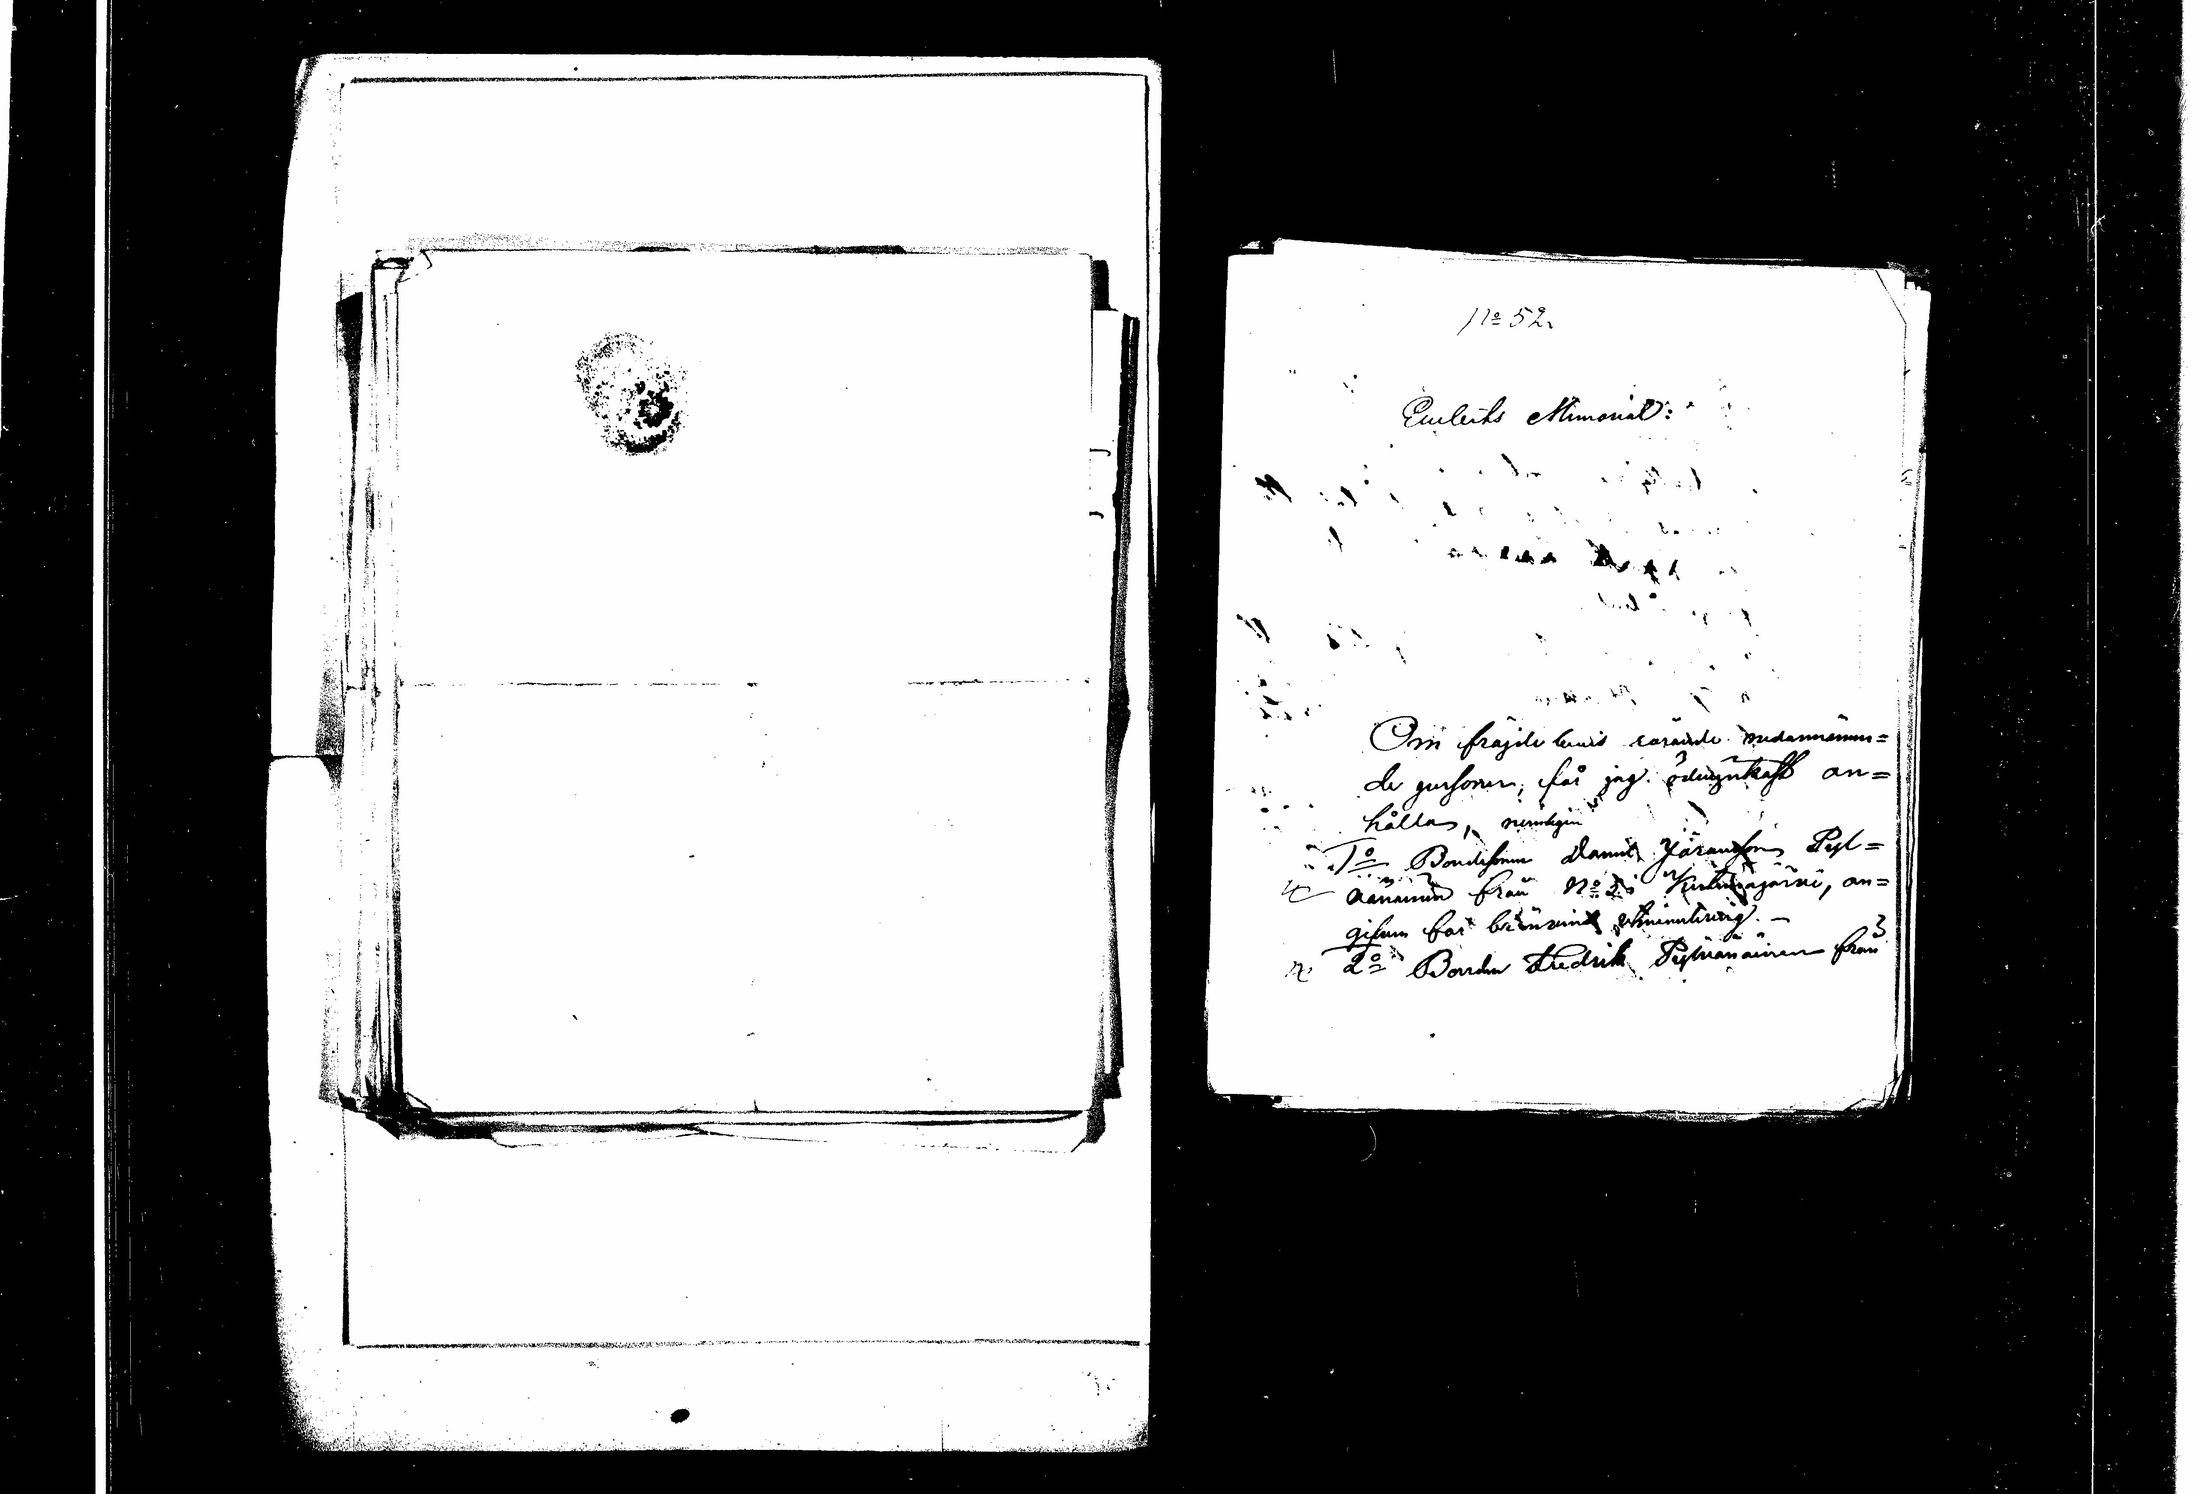 No 52.
Ödmjukt Memorial:
Om fräjdebevis rörande nedannämn=
de personer, får jag ödmjukast an=
hålla, nemligen
1o Bondesonen Daniel Göransson Pyl=
vänäinen från No 2 i Kulvajärvi, an=
gifven för brännvins
2o Bonden Fredrik Pylvänäinen från